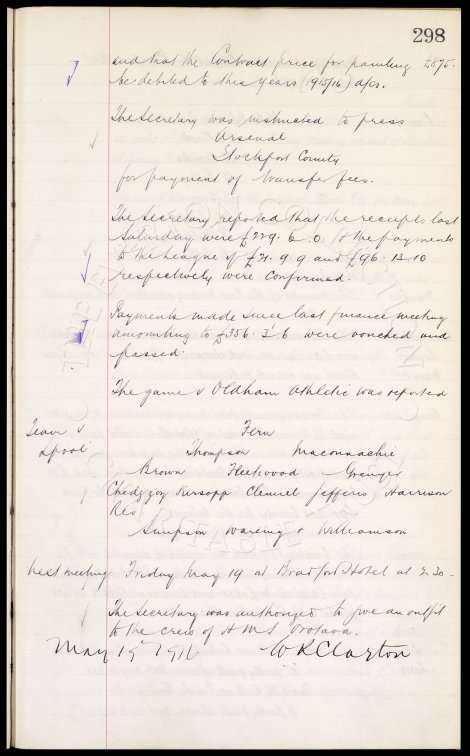 298
and that the Contract price for painting £875.
be debited to this years (1915/16) a/cs.
The Secretary was instructed to press
Arsenal
Stockport County
for payment of transfer fees.
The Secretary reported that the receipts last
Saturday were £229. 6. 0. & the payments
to the League of £21. 9. 9 and £96. 13. 10
respectively were confirmed.
Payments made since last finance meeting
amounting to £356. 3. 6 were vouched and
passed.
The game v Oldham Athletic was reported
Team v Fern
Lpool Thompson Maconnachie
Brown Fleetwood Grenyer
Chedgzoy Kirsopp Clennell Jefferis Harrison
Res
Simpson, Wareing & Williamson
Next meeting Friday May 19 at Bradford Hotel at 2.30
The Secretary was authorized to give an outfit
to the crew of HMS Orotava.
May 19 1916 W R Clayton